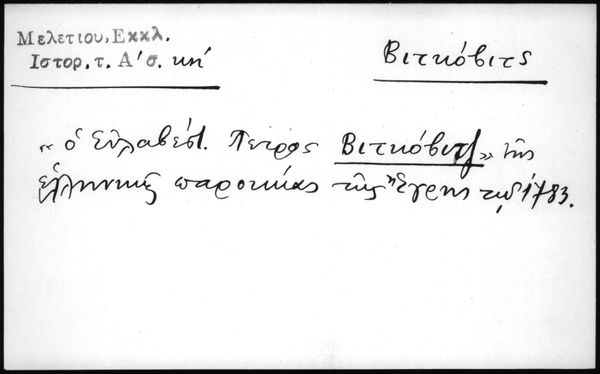 Μελετιου, Εκκλ.
Ιστορ. τ. Α' σ. κή
Βιτκόβιτς
« ὁ εὐλαβέστ. Πέτρος Βιτκόβιτζ» τῆς
ἑλληνικῆς παροικίας τῆς Ἔγρης τῷ 1783.